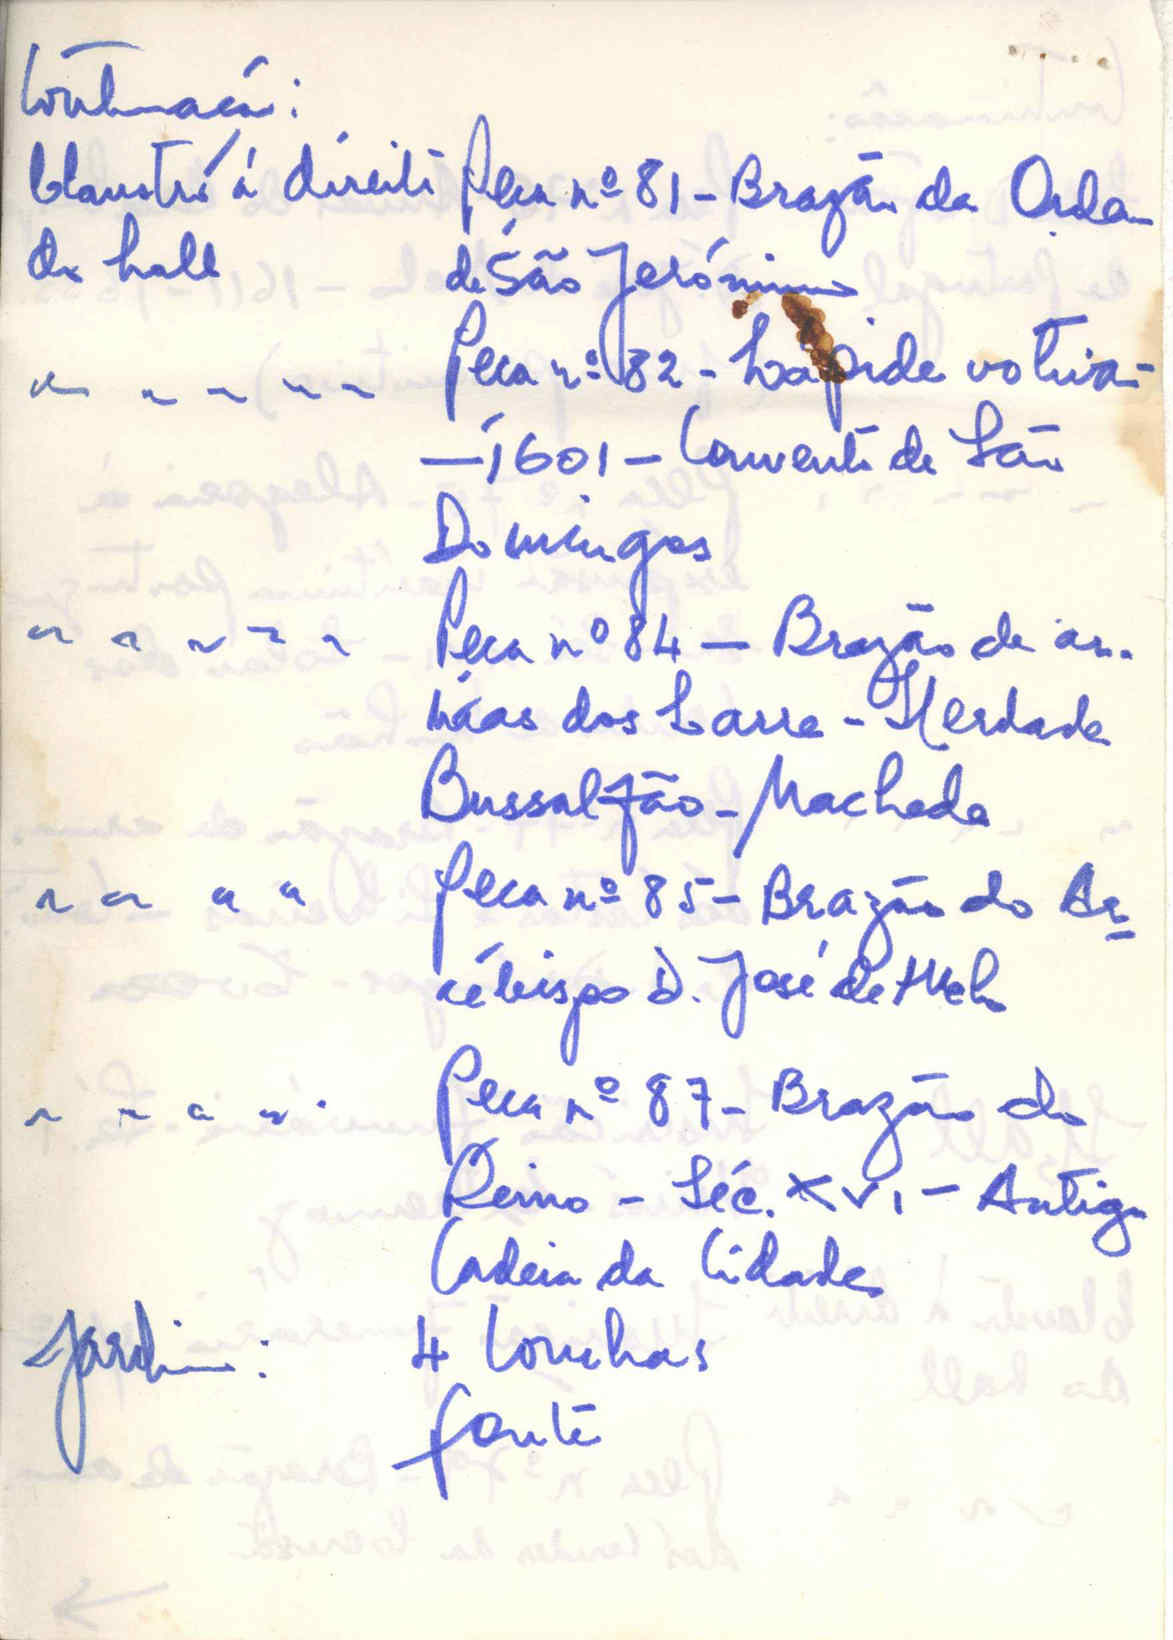 Continuação:
Claustro á direita Peça nº 81 - Brazão da Ordem
do hall de São Jerónimo
" " " " " Peça nº 82 - Lápide votiva -
- 1601 - Convento de São
Domingos
" " " " " Peça nº 84 - Brazão de ar-
mas dos Larre - Herdade
Bussalfão - Machede
" " " " Peça nº 85 - Brazão do Ar-
cebispo D. José de Melo
" " " " Peça nº 87 - Brazão do
Reino - Séc. XVI - Antiga
Cadeia da Cidade
Jardim: 4 Conchas
fonte